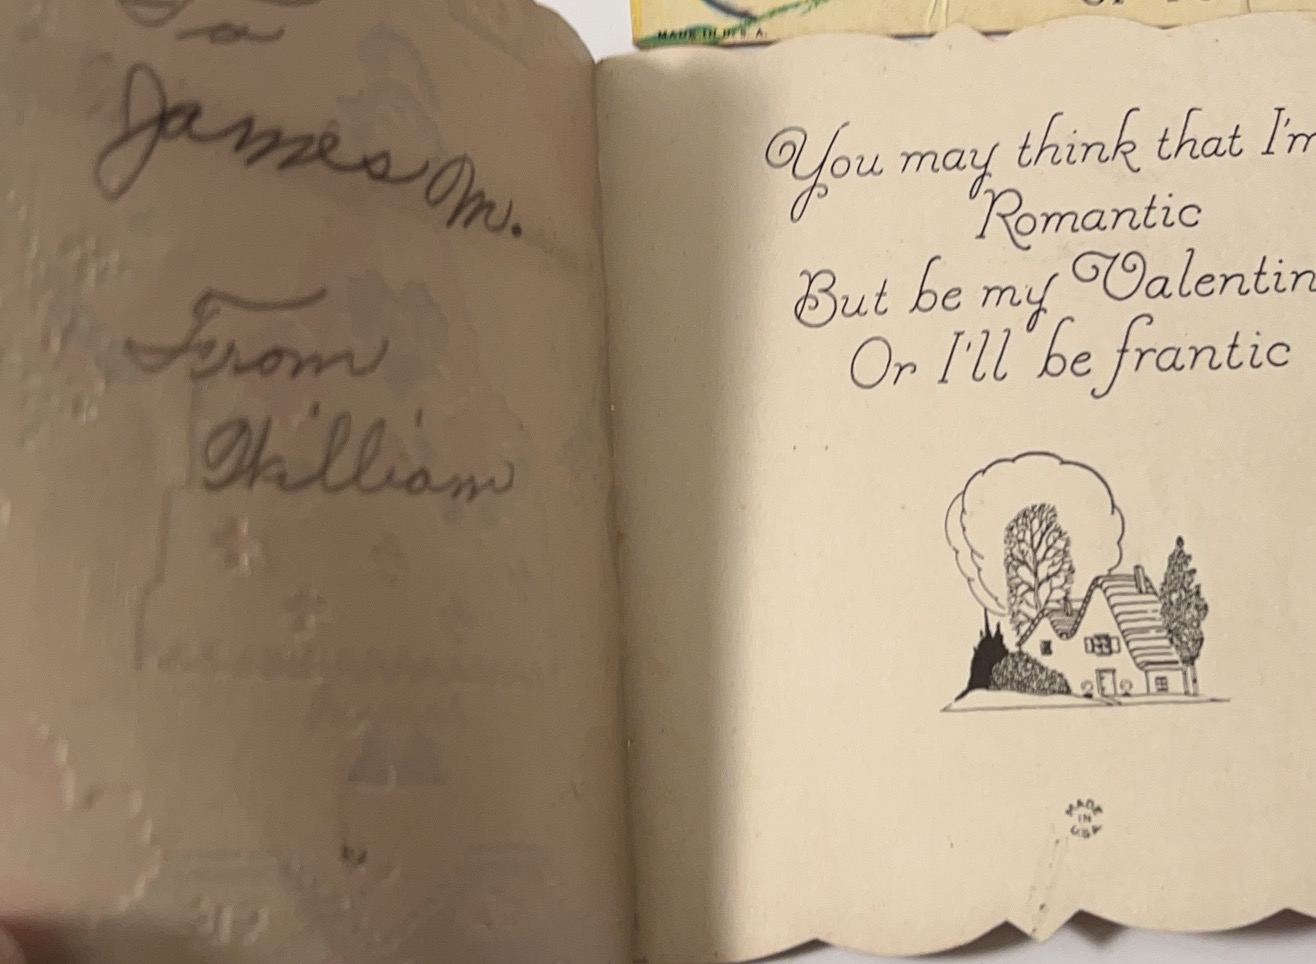 To
James M.
From
William
MADE IN U.S.A.
You may think that I'm
Romantic
But be my Valentin
Or I'll be frantic
MADE
IN
USA